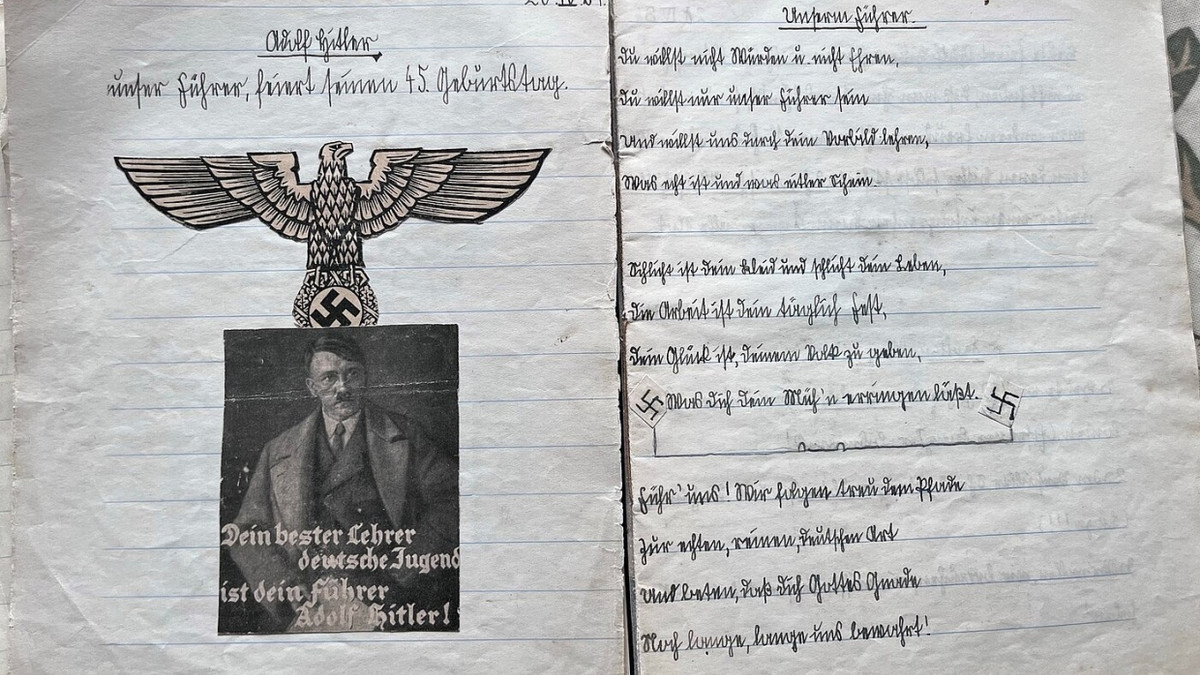 Adolf Hitler,
unser Führer, feiert seinen 45. Geburtstag.
Dein bester Lehrer
deutsche Jugend
ist dein Führer
Adolf Hitler!
Unserm Führer.
Du willst nicht Würden u. nicht Ehren,
Du willst nur unser Führer sein
Und willst uns durch dein Vorbild lehren,
Was echt ist und was eitler Schein.
Schlicht ist dein Kleid und schlicht dein Leben,
Die Arbeit ist dein täglich Fest,
Dein Glück ist, deinem Volk zu geben,
Was dich dein Müh'n erringen läßt.
Führ' uns! Wir folgen treu dem Pfade
Zur echten, reinen, deutschen Art
Und beten, daß dich Gottes Gnade
Noch lange, lange uns bewahrt!